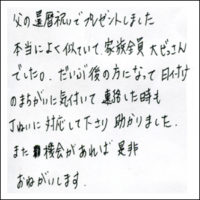 父の還暦祝いでプレゼントしました
本当によく似ていて、家族全員 大びっくり
でした。だいぶ後の方になって日付け
のまちがいに気付いて 連絡した時も
丁ねいに対応して下さり 助かりました。
また 機会があれば 是非
おねがいします。